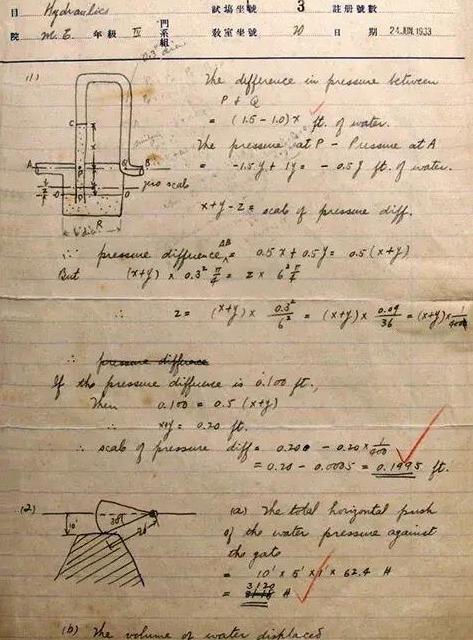 目 Hydraulics 試場坐號 3 註册號數
院 M.E. 年級 IV 門系組 教室坐號 20 日期 24 JUN. 1933
(1) 0.3" dia.
The difference in pressure between
P & Q
= (1.5 - 1.0) x ft. of water.
The pressure at P - Pressure at A
= -1.5y + 1y = -0.5y ft. of water.
C
A
B
zero scale
R
6" dia.
x+y-z = scale of pressure diff.
∴ pressure difference AB = 0.5x + 0.5y = 0.5(x+y)
But (x+y) x 0.3² π/4 = z x 6² π/4
∴ z = (x+y) x 0.3²/6² = (x+y) x 0.09/36 = (x+y) x 1/400
∴ pressure difference
If the pressure difference is 0.100 ft.,
Then 0.100 = 0.5 (x+y)
∴ x+y = 0.20 ft.
∴ scale of pressure diff = 0.200 - 0.20 x 1/400
= 0.20 - 0.0005 = 0.1995 ft.
(2)
10'
30°
20'
(a) The total horizontal push
of the water pressure against
the gate
= 10' x 5' x 1' x 62.4 #
= 3120 #
(b) The volume of water displaced